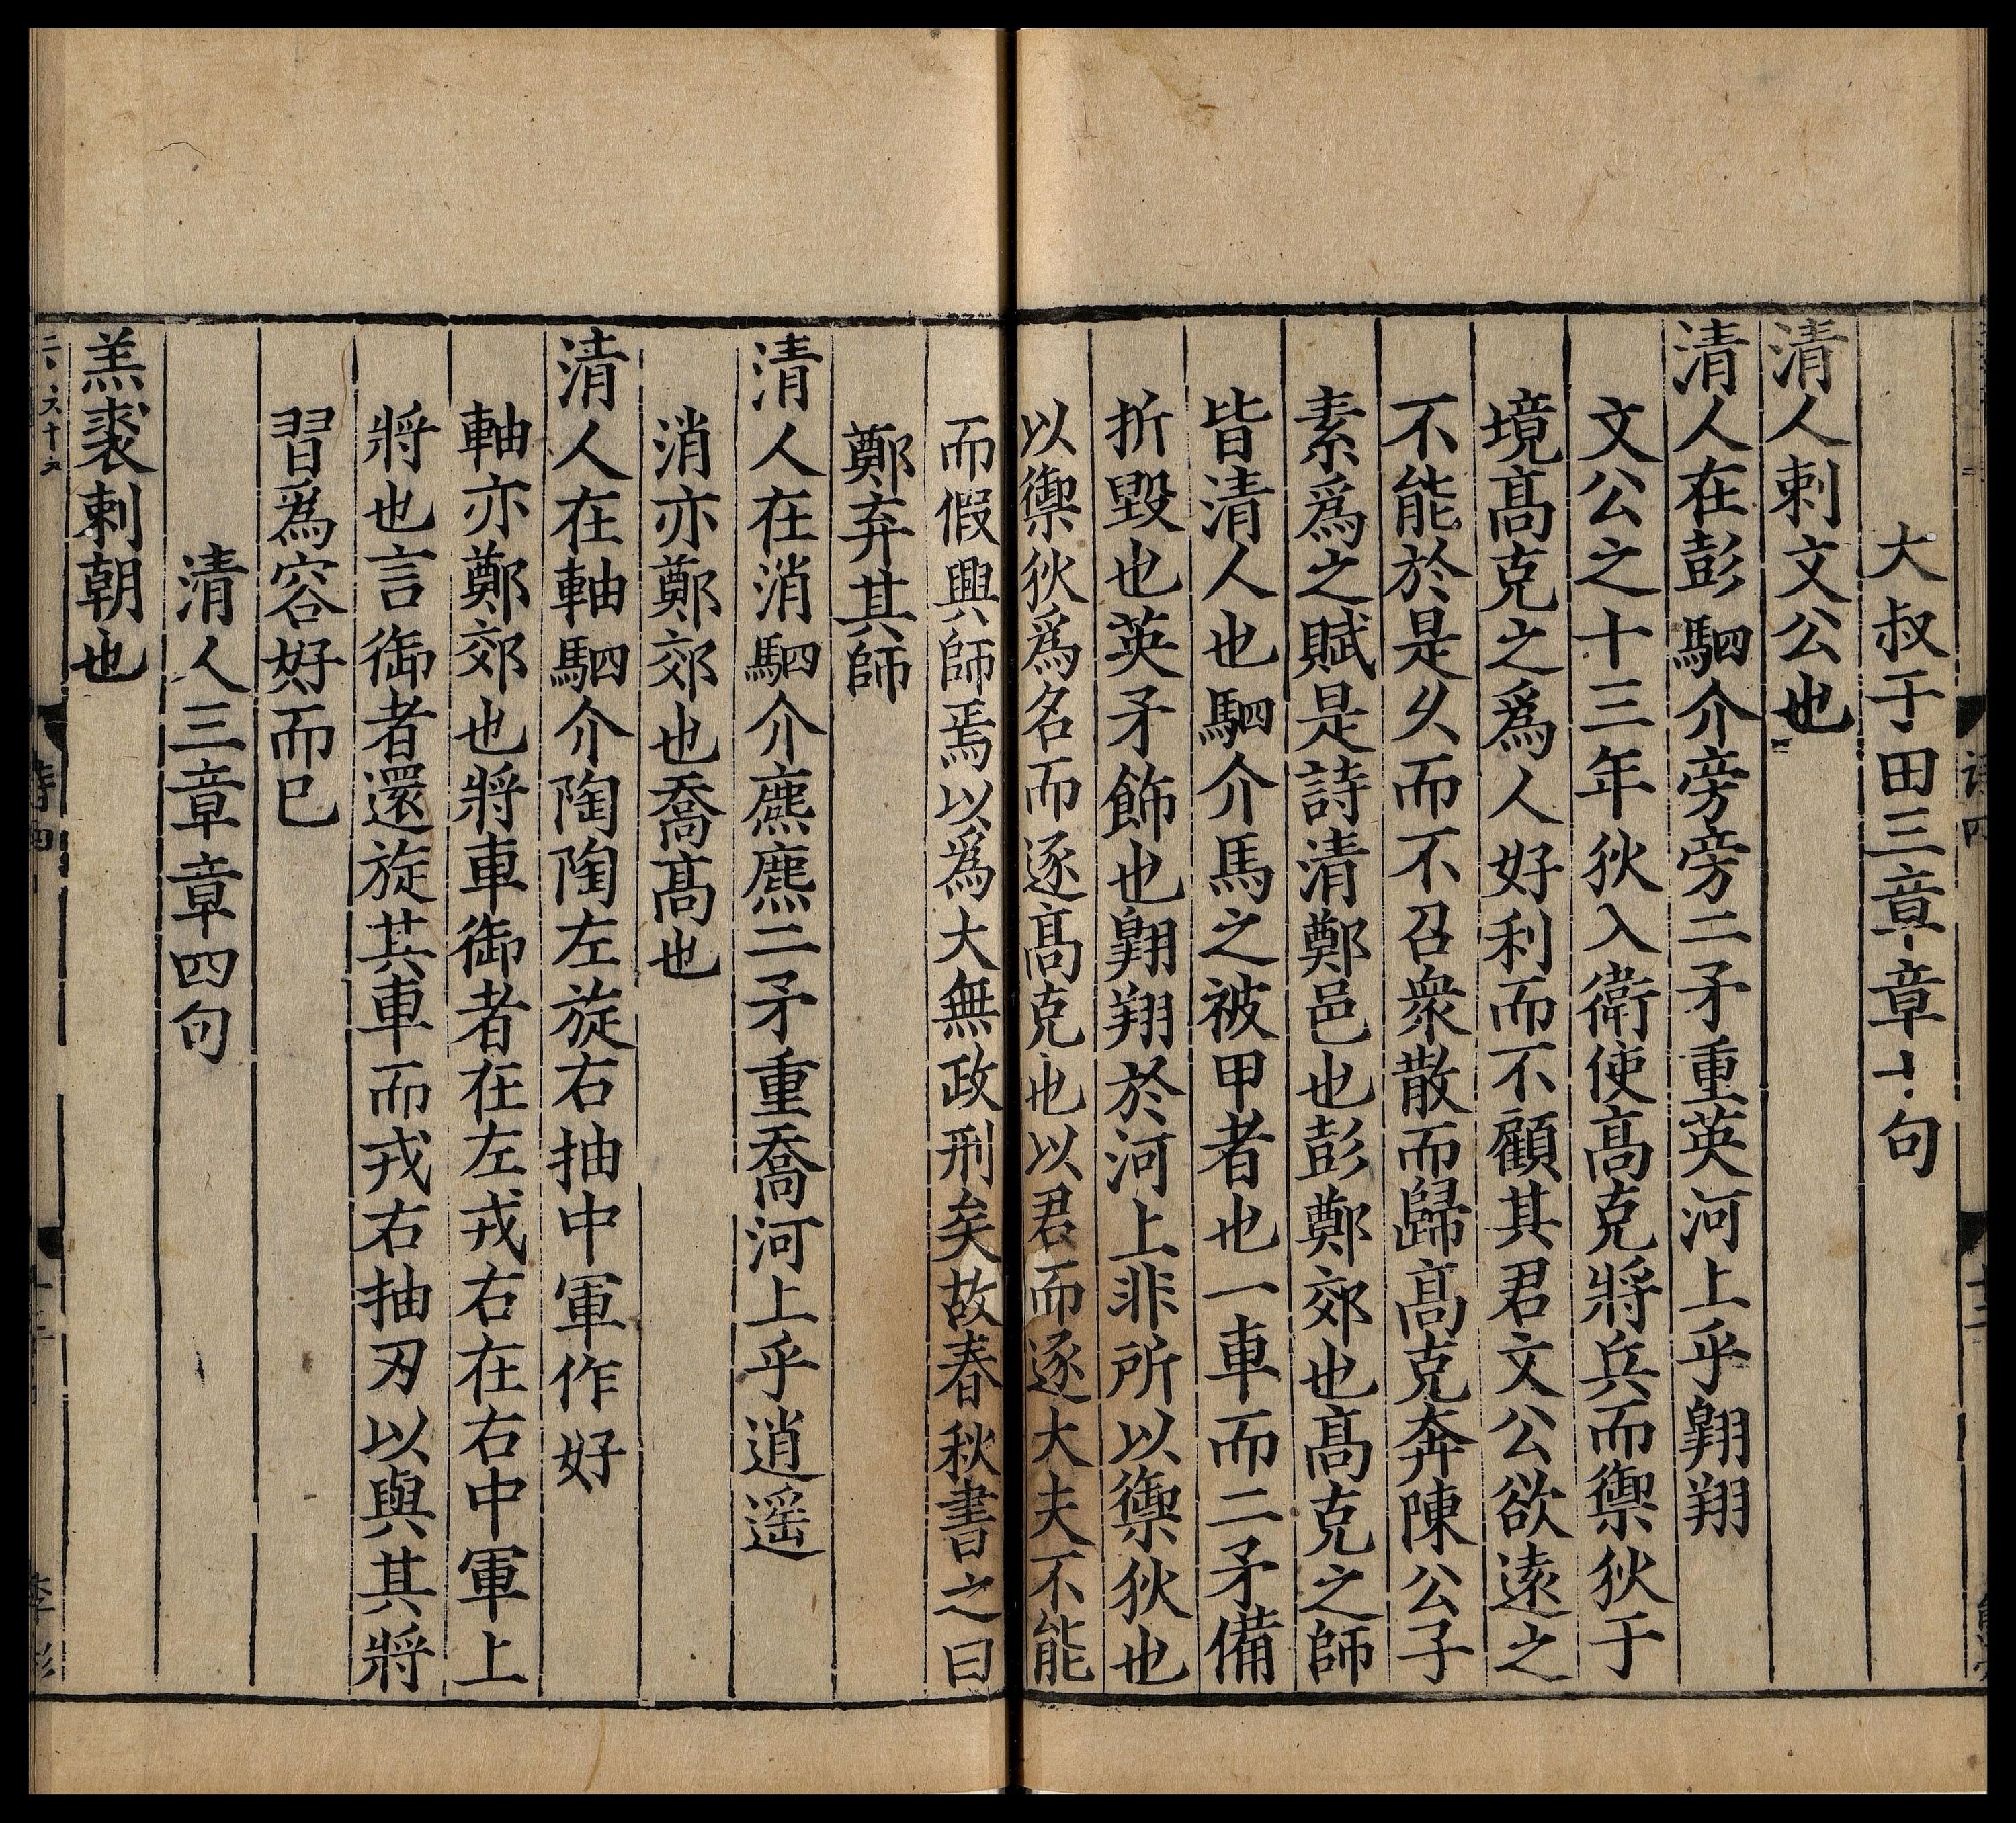 大叔于田三章章十句
清人刺文公也
清人在彭駟介旁旁二矛重英河上乎翺翔
文公之十三年狄入衛使髙克將兵而禦狄于
境髙克之爲人好利而不顧其君文公欲逺之
不能於是乆而不召衆散而歸髙克奔陳公子
素爲之賦是詩清鄭邑也彭鄭郊也髙克之師
皆清人也駟介馬之被甲者也一車而二矛備
折毀也英矛飾也翺翔於河上非所以禦狄也
以禦狄爲名而逐髙克也以君而逐大夫不能
而假興師焉以爲大無政刑矣故春秋書之曰
鄭弃其師
清人在消駟介麃麃二矛重喬河上乎逍遥
消亦鄭郊也喬髙也
清人在軸駟介陶陶左旋右抽中軍作好
軸亦鄭郊也將車御者在左戎右在右中軍上
將也言御者還旋其車而戎右抽刃以與其將
習爲容好而已
清人三章章四句
羔裘刺朝也
詩四